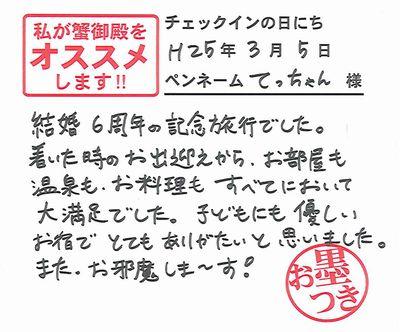 私が蟹御殿を
オススメ
します!!
チェックインの日にち
H25年3月5日
ペンネーム てっちゃん 様
結婚6周年の記念旅行でした。
着いた時のお出迎えから、お部屋も
温泉も、お料理も すべてにおいて
大満足でした。子どもにも優しい
お宿で とても ありがたいと 思いました。
また、お邪魔しま〜す!
お墨つき